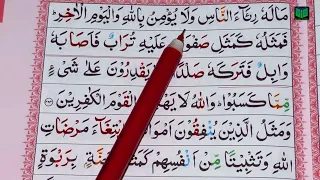 مَالَهٗ رِئَآءَ النَّاسِ وَلَا يُؤْمِنُ بِاللّٰهِ وَالْيَوْمِ الْاٰخِرِ
فَمَثَلُهٗ كَمَثَلِ صَفْوَانٍ عَلَيْهِ تُرَابٌ فَاَصَابَهٗ
وَابِلٌ فَتَرَكَهٗ صَلْدًا يَقْدِرُوْنَ عَلٰى شَيْءٍ
مِّمَّا كَسَبُوْا وَاللّٰهُ لَا يَهْدِي الْقَوْمَ الْكٰفِرِيْنَ
وَمَثَلُ الَّذِيْنَ يُنْفِقُوْنَ اَمْوَا ابْتِغَآءَ مَرْضَاتِ
اللّٰهِ وَتَثْبِيْتًا مِّنْ اَنْفُسِهِمْ كَمَثَلِ جَنَّةٍۭ بِرَبْوَةٍ